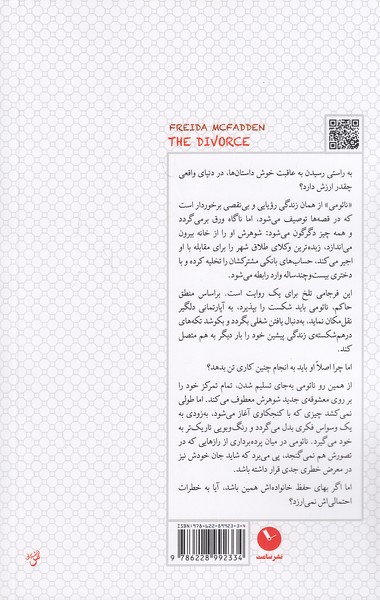 FREIDA MCFADDEN
THE DIVORCE
به راستی رسیدن به عاقبت خوش داستان‌ها، در دنیای واقعی
چقدر ارزش دارد؟
«نائومی» از همان زندگی رؤیایی و بی‌نقصی برخوردار است
که در قصه‌ها توصیف می‌شود، اما ناگاه ورق برمی‌گردد
و همه چیز دگرگون می‌شود: شوهرش او را از خانه بیرون
می‌اندازد، زبده‌ترین وکلای طلاق شهر را برای مقابله با او
اجیر می‌کند، حساب‌های بانکی مشترکشان را تخلیه کرده و با
دختری بیست‌وچندساله وارد رابطه می‌شود.
این فرجامی تلخ برای یک روایت است. براساس منطق
حاکم، نائومی باید شکست را بپذیرد، به آپارتمانی دلگیر
نقل‌مکان نماید، به‌دنبال یافتن شغلی بگردد و بکوشد تکه‌های
درهم‌شکسته‌ی زندگی پیشین خود را بار دیگر به هم متصل
کند.
اما چرا اصلاً او باید به انجام چنین کاری تن بدهد؟
از همین رو نائومی به‌جای تسلیم شدن، تمام تمرکز خود را
بر روی معشوقه‌ی جدید شوهرش معطوف می‌کند. اما طولی
نمی‌کشد چیزی که با کنجکاوی آغاز می‌شود، به‌زودی به
یک وسواس فکری بدل می‌گردد و رنگ‌وبویی تاریک‌تر به
خود می‌گیرد. نائومی در میان پرده‌برداری از رازهایی که در
تصورش هم نمی‌گنجد، پی می‌برد که شاید جان خودش نیز
در معرض خطری جدی قرار داشته باشد.
اما اگر بهای حفظ خانواده‌اش همین باشد، آیا به خطرات
احتمالی‌اش نمی‌ارزد؟
ISBN: 978-622-89923-3-4
9 786228 992334
نشر ساعت